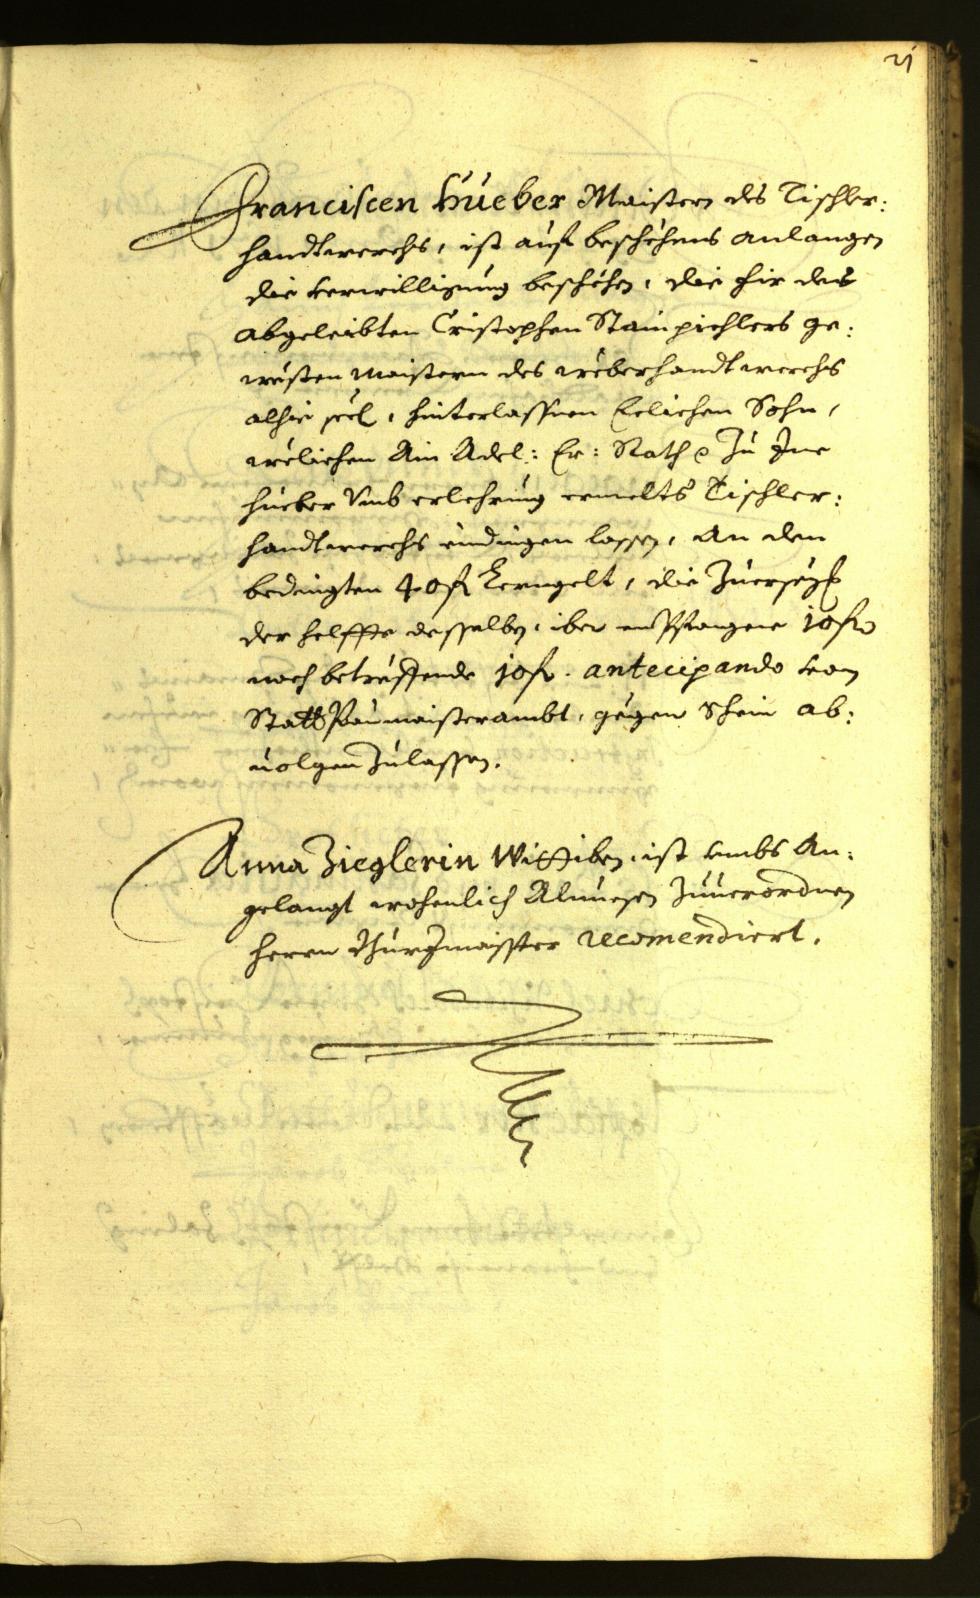 21
Franciscen Hueber Maistern des Tischler:
handtwerchs, ist auf beschehens anlangen
die verwilligung beschehen, die fir des
abgeleibten Cristophen Stainpichlers ge:
westen Maistern des weberhandtwerchs
alhie seel, hinterlassnen Eelichen Sohn,
welichen Ain Adel: Er: Rath zu Ime
hueber Vmb erlehrnung ermelts Tischler:
handtwerchs eindingen lassen, An den
bedingten 40 fl Lerngelt, die
der helffte desselben, iber empfangne 10 fl
noch betreffende 10 fl. antecipando von
Statt Paumaisterambt, gegen Schein ab:
uolgen zulassen.
Anna Zieglerin Wittiben, ist vmbs An:
gelangt wochenlich Almuesen zuuerordnen
herrn maisster recomendiert.